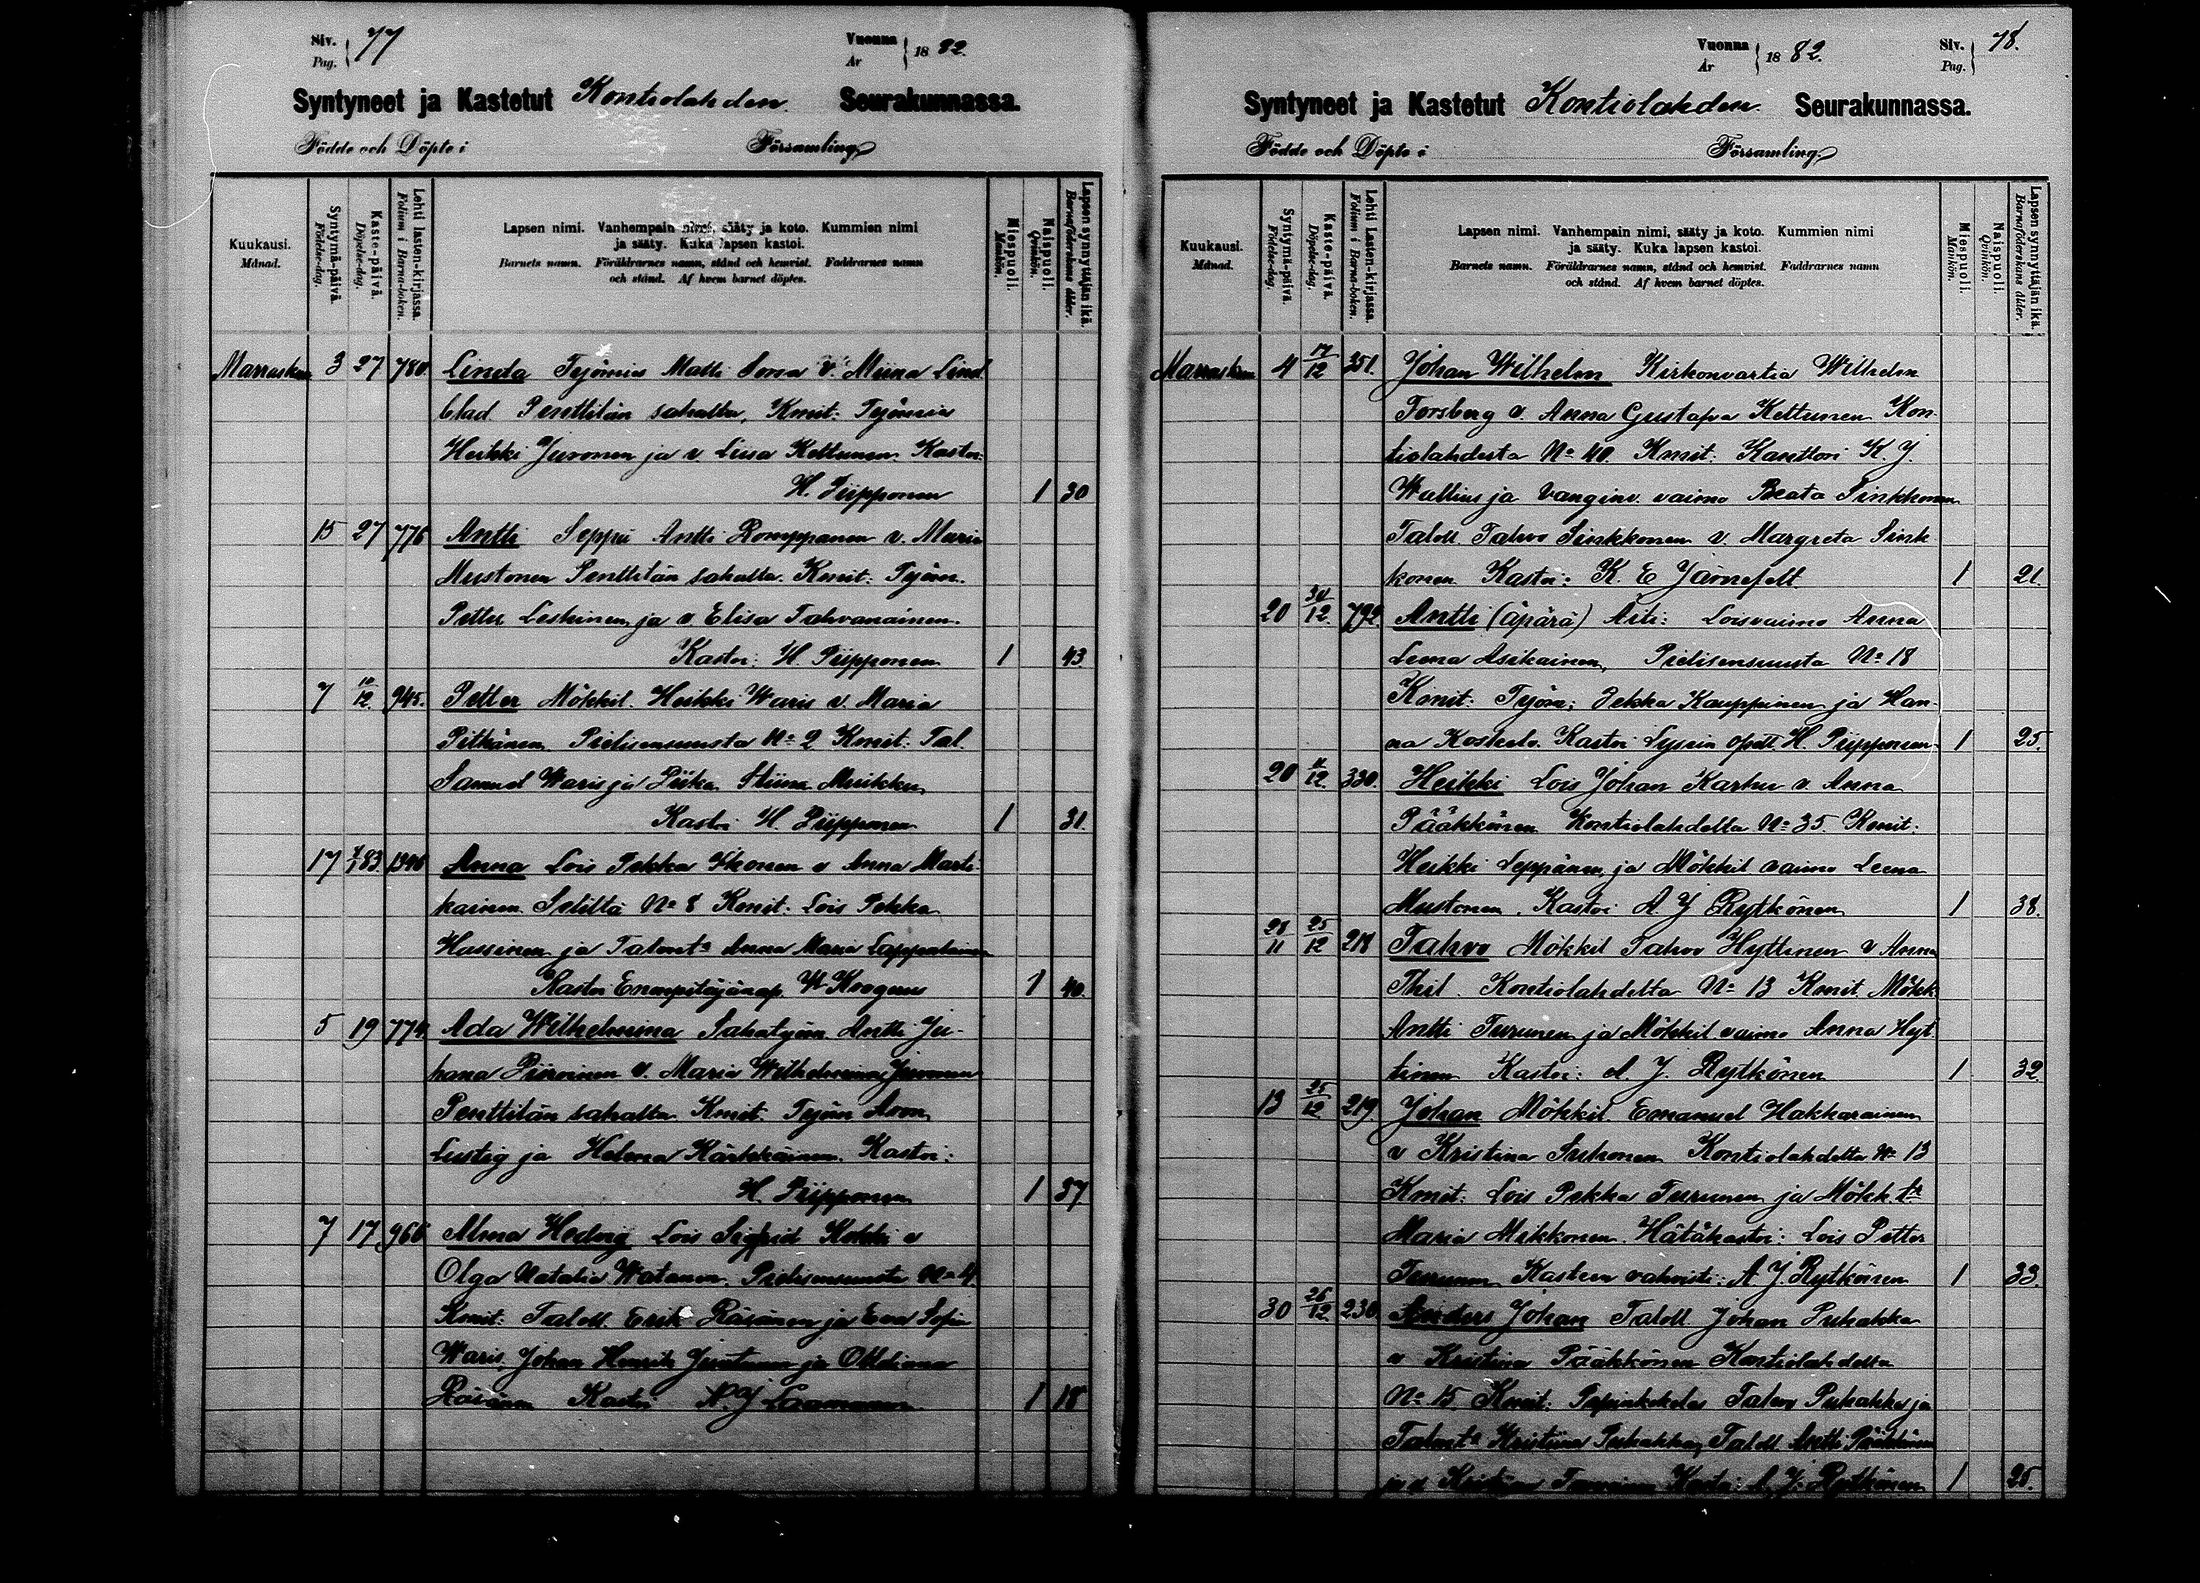 Siv. Pag. 77
Vuonna År 1882.
Syntyneet ja Kastetut Kontiolahden Seurakunnassa.
Födde och Döpte i Församling
Kuukausi. Månad.
Syntymä-päivä. Födelse-dag.
Kaste-päivä. Döpelse-dag.
Lehti lasten-kirjassa. Folium i Barna-boken.
Lapsen nimi. Vanhempain nimi, sääty ja koto. Kummien nimi
ja sääty. Kuka lapsen kastoi.
Barnets namn. Föräldrarnes namn, stånd och hemvist. Faddrarnes namn
och stånd. Af hvem barnet döptes.
Miespuoli. Mankön.
Naispuoli. Qvinkön.
Lapsen synnyttäjän ikä. Barnaföderskans ålder.
Marraskuu 3 27 780 Linda Työmies Matti Sorsa v. Miina Lind
blad Penttilän sahalta, Kmit: Työmies
Heikki Juronen ja v Liisa Kettunen. Kastoi:
H. Piipponen 1 30
15 27 776 Antti Seppä Antti Romppanen v. Maria
Mustonen Penttilän sahalta. Kmit: Työm.
Petter Leskinen, ja v. Elisa Tahvanainen.
Kastoi: H. Piipponen 1 43
7 10/12. 945. Petter Mökkil. Heikki Waris v. Maria
Pitkänen. Pielisensuusta No 2 Kmit: Tal.
Samuel Waris ja Piika Stiina Murikku
Kastoi H. Piipponen 1 31.
17 7/1 83. Anna Lois Pekka Ikonen v Anna Marti
kainen. Seliltä No 8 Kmit: Lois Pekka
Hassinen ja Talont:r Anna Maria Lappalainen
Kastoi Enonpitäjänap. W Krogerus 1 40.
5 19 774. Ada Wilhelmina Sahatyöm. Antti Ju-
hana Piiroinen v. Maria Wilhelmina Juvonen
Penttilän sahalta. Kmit: Työm Aron
Lustig ja Helena Kärkkäinen. Kastoi:
H. Piipponen 1 37
7 17 966 Alma Hedvig Lois Sigfrid Kokki v
Olga Natalia Watanen. Pielisensuusta No 4
Kmit: Taloll. Erik Räsänen ja Eva Sofia
Waris, Johan Henrik Juntunen ja Ottiliana
Räsänen Kastoi P. J Laamanen 1 18
Vuonna År 1882.
Siv. Pag. 78.
Syntyneet ja Kastetut Kontiolahden Seurakunnassa.
Födde och Döpte i Församling
Kuukausi. Månad.
Syntymä-päivä. Födelse-dag.
Kaste-päivä. Döpelse-dag.
Lehti Lasten-kirjassa. Folium i Barna-boken.
Lapsen nimi. Vanhempain nimi, sääty ja koto. Kummien nimi
ja sääty. Kuka lapsen kastoi.
Barnets namn. Föräldrarnes namn, stånd och hemvist. Faddrarnes namn
och stånd. Af hvem barnet döptes.
Miespuoli. Mankön.
Naispuoli. Qvinkön.
Lapsen synnyttäjän ikä. Barnaföderskans ålder.
Marraskuu 4 17/12 351. Johan Wilhelm Kirkonvartia Wilhelm
Forsberg v. Anna Gustava Kettunen Kon-
tiolahdesta No 40. Kmit: Kanttori K. J.
Wallius ja Vanginv. vaimo Beata Sinkkonen
Taloll. Tahvo Sinkkonen v. Margreta Sink
konen Kastoi: K. E Järnefelt 1 21.
20 30/12. 792. Antti (äpärä) Äiti: Loisvaimo Anna
Leena Asikainen, Pielisensuusta No 18
Kmit: Työm: Pekka Kauppinen ja Han-
na Koskelo. Kastoi Lysein opett. H. Piipponen. 1 25.
20 /12. 330. Heikki Lois Johan Karhu v. Anna
Pääkkönen Kontiolahdelta No 35 Kmit:
Heikki Leppänen, ja Mökkil vaimo Leena
Mustonen. Kastoi A. J Rytkönen 1 38.
28/11 25/12 218 Tahvo Mökkil Tahvo Hyttinen v Anna
Thil. Kontiolahdelta No 13 Kmit. Mökk
Antti Turunen ja Mökkil. vaimo Anna Hyt-
tinen Kastoi: A. J. Rytkönen 1 32.
13 25/12 219 Johan Mökkil. Emanuel Hakkarainen
v Kristina Suhonen Kontiolahdelta No 13
Kmit: Lois Pekka Turunen ja Mökk. t:r
Maria Mikkonen. Hätäkastoi: Lois Petter
Turunen Kasteen vahvisti: A. J. Rytkönen 1 33.
30 26/12. 230. Anders Johan Taloll Johan Puhakka
v Kristina Pääkkönen Kontiolahdelta
No 15. Kmit: Tahvo Puhakka ja
Talont:r Kristiina Puhakka, Taloll Antti Pääkkönen
ja v Kristina Kastoi: A. J. Rytkönen 1 25.